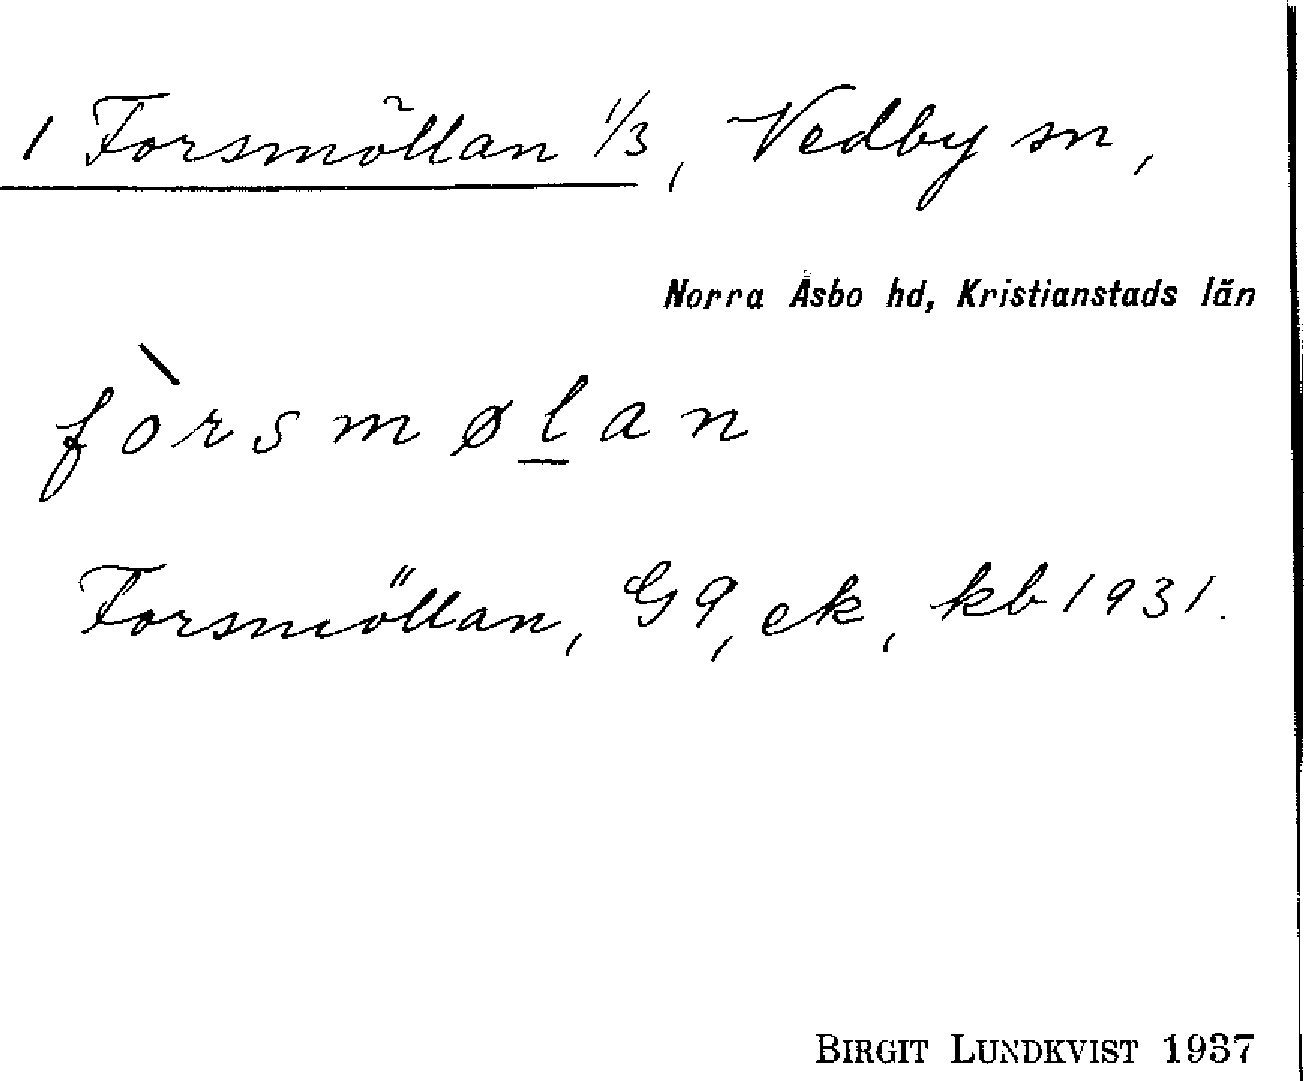 1 Forsmöllan 1/3, Vedby sn,
Norra Åsbo hd, Kristianstads län
fòrsmøl̲an
Forsmöllan, G9, ek, kb 1931.
BIRGIT LUNDKVIST 1937